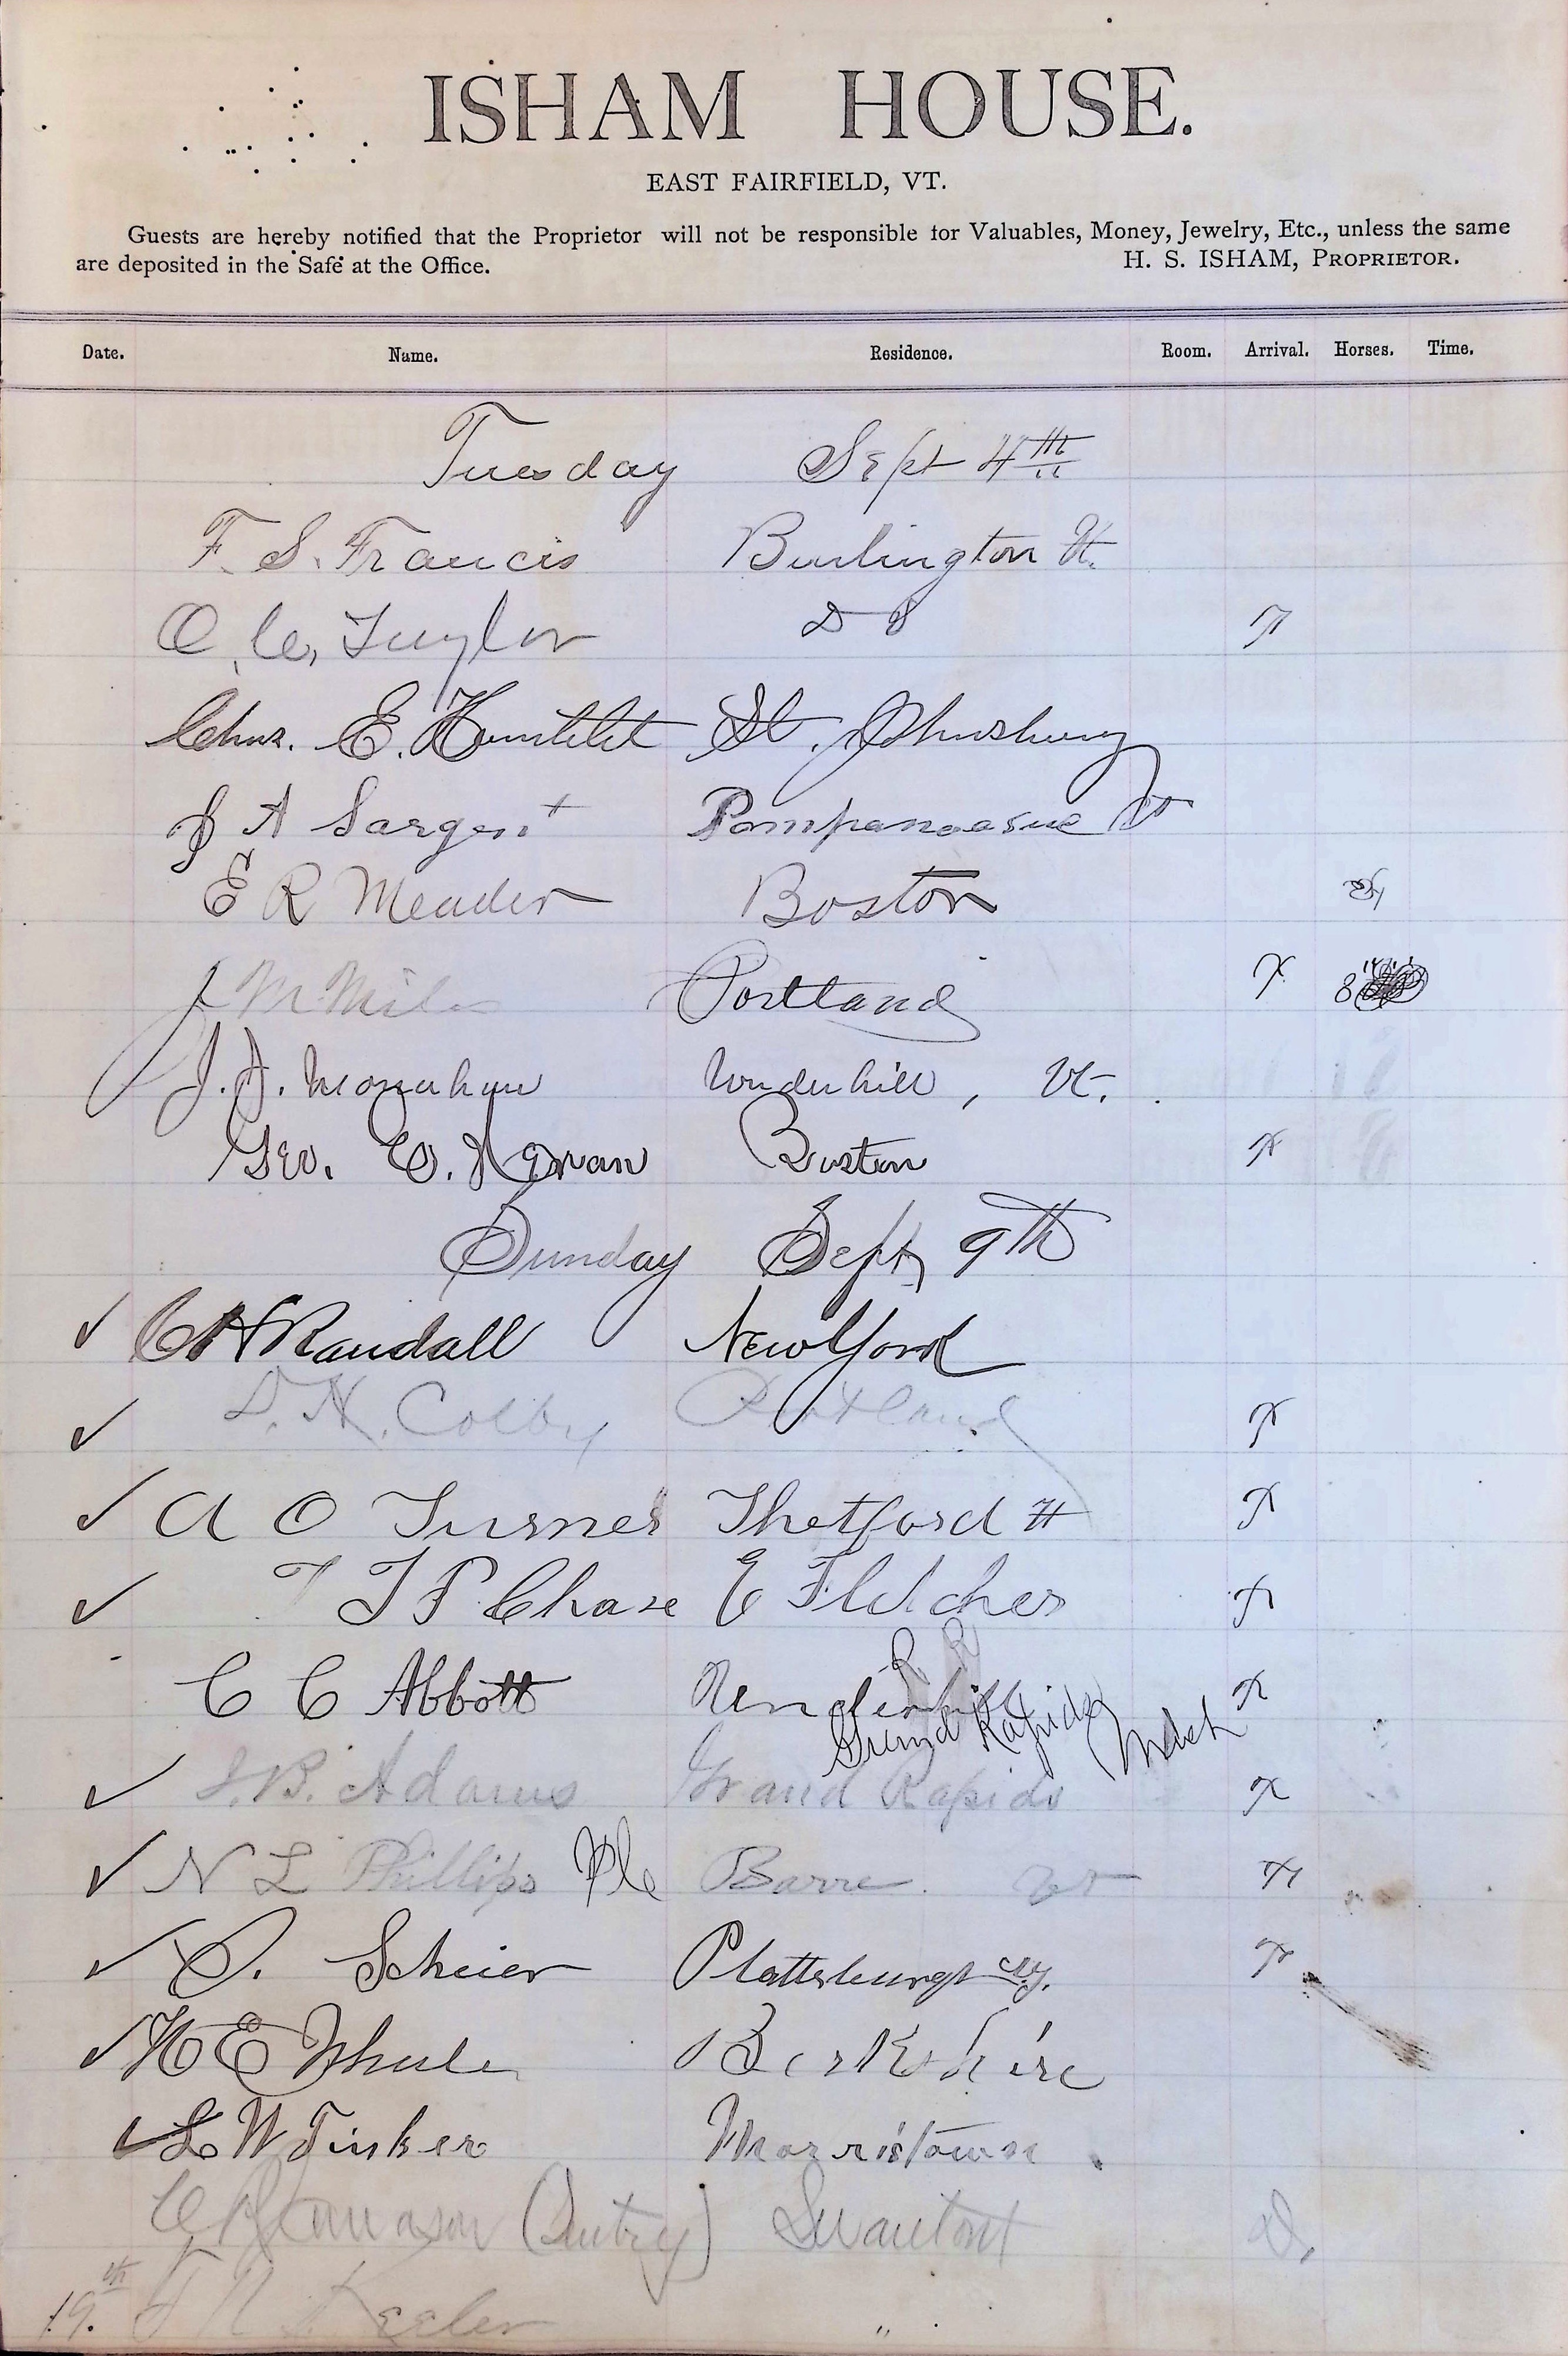 ISHAM HOUSE.
EAST FAIRFIELD, VT.
Guests are hereby notified that the Proprietor will not be responsible for Valuables, Money, Jewelry, Etc., unless the same
are deposited in the Safe at the Office. H. S. ISHAM, PROPRIETOR.
Date. Name. Residence. Room. Arrival. Horses. Time.
Tuesday Sept 4th
F. S. Francis Burlington Vt.
O. C. Taylor
Chas. E. St. Johnsbury
J A Sargent Pompanoosuc Vt
E R Meader Boston
J M Miles Portland
J. A. Monahan Underhill, Vt.
Geo. E. Boston
Sunday Sept 9th
C H Randall New York
D. H. Colby Portland
A O Turner Thetford Vt
T F Chase E Fletcher
R R
C C Abbott
Grand Rapids Mich
J. B. Adams Grand Rapids
N L Phillips Barre Vt
S. Scheier Plattsburgh N.Y.
H E Berkshire
L W Tinker Morristown
Swanton
19th Keeler "